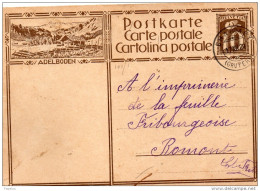 Postkarte
Carte postale
Cartolina postale
10
ADELBODEN
A l'imprimerie
de la feuille
Fribourgeoise
Romont